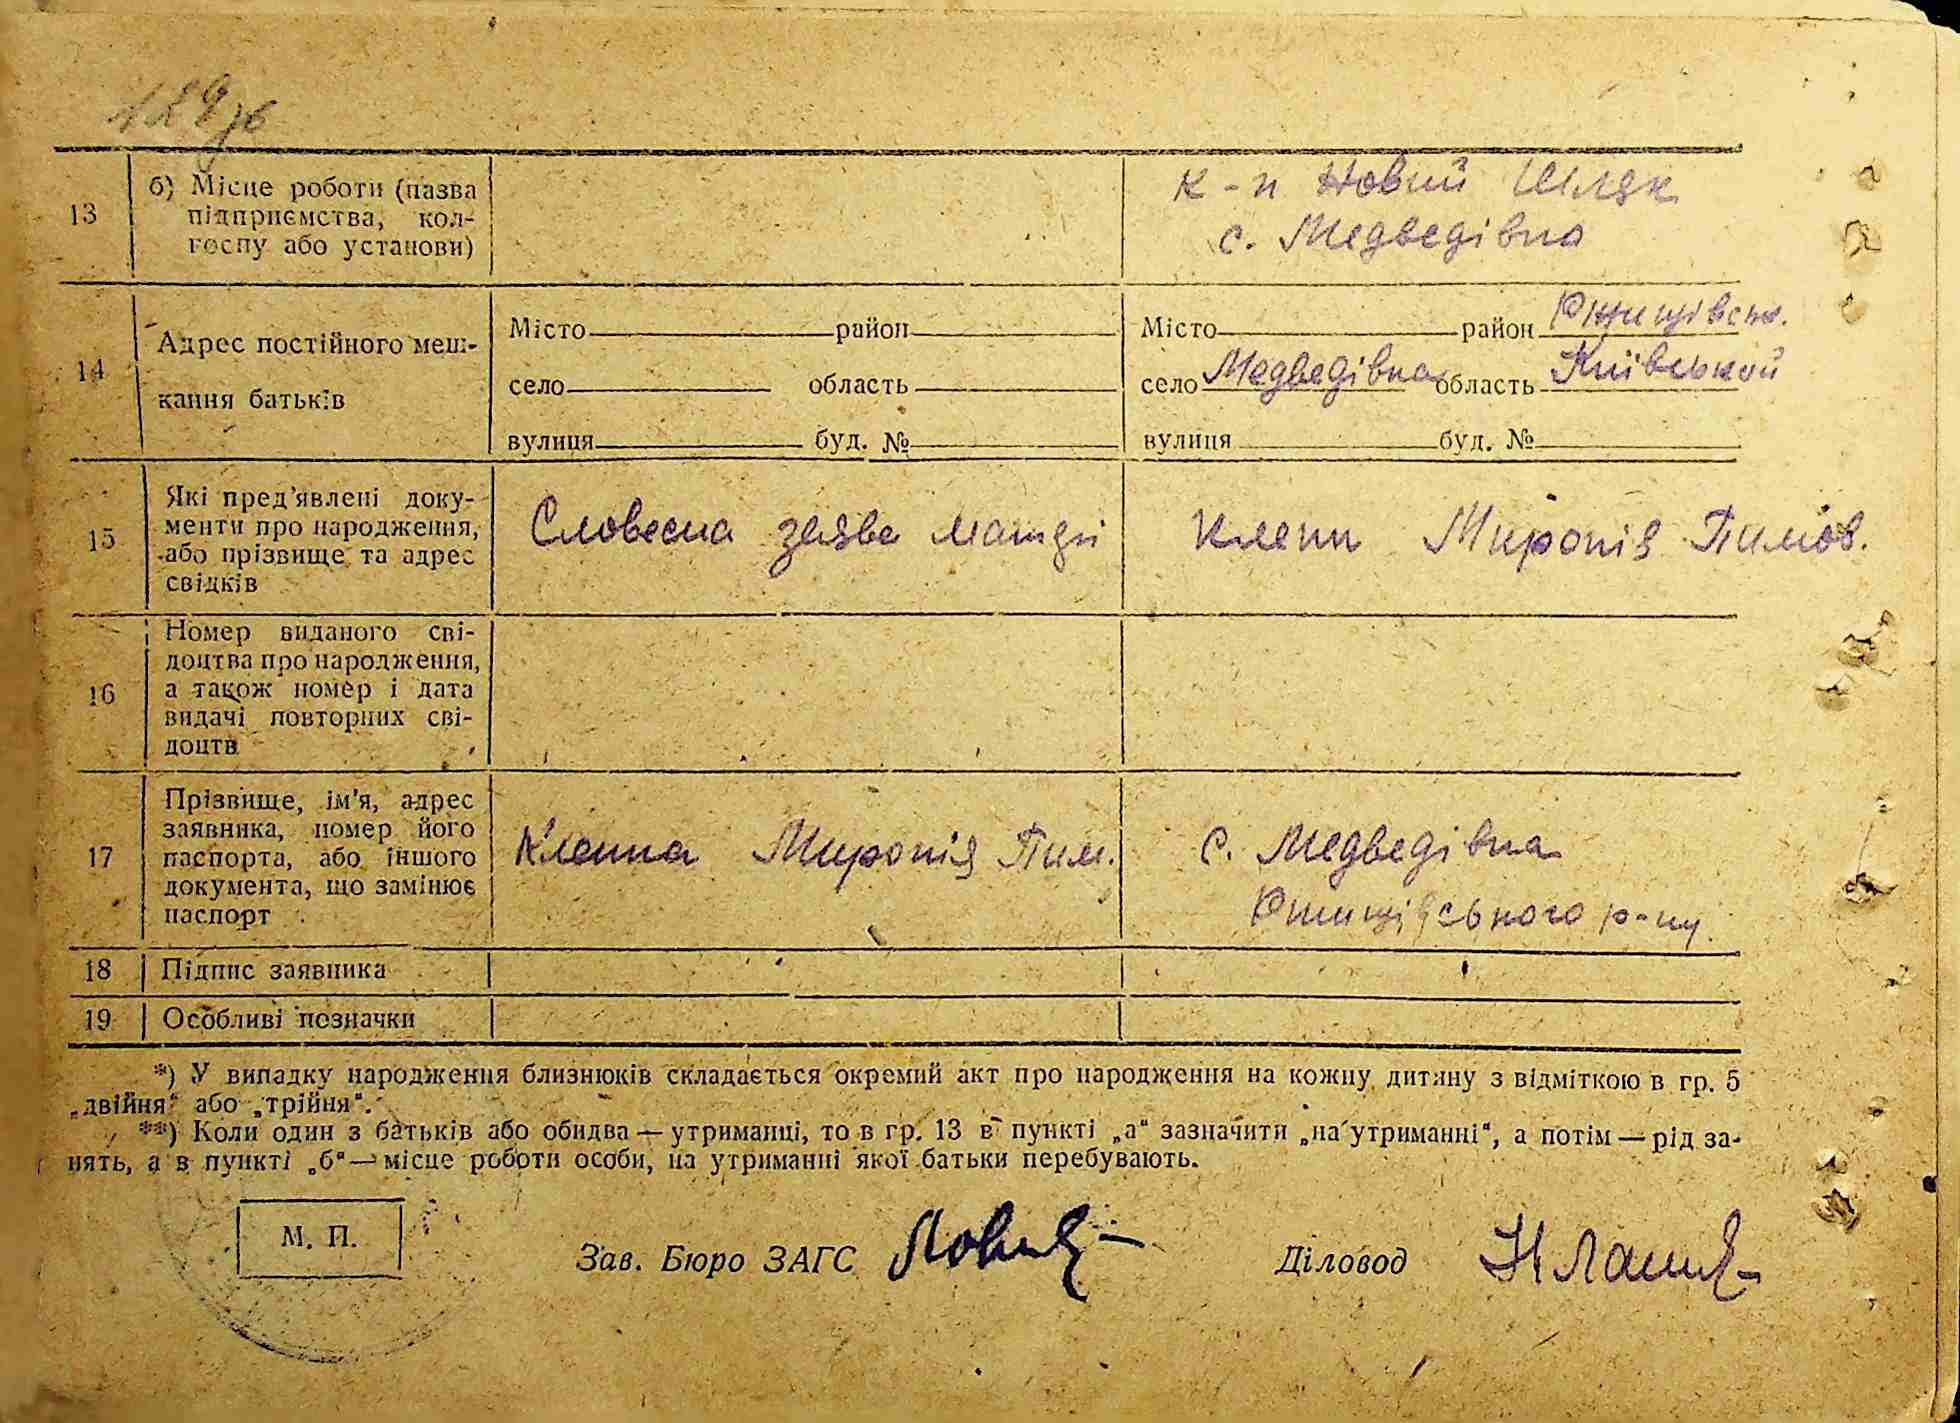 189зв
13 б) Місце роботи (назва підприємства, колгоспу або установи)
к-п Новий Шлях
с. Медведівка
14 Адрес постійного мешкання батьків
Місто район
село область
вулиця буд. №
Місто район Ржищівськ.
село Медведівка область Київській
вулиця буд. №
15 Які пред'явлені документи про народження, або прізвище та адрес свідків
Словесна заява матері Миронія Тимов.
16 Номер виданого свідоцтва про народження, а також номер і дата видачі повторних свідоцтв
17 Прізвище, ім'я, адрес заявника, номер його паспорта, або іншого документа, що замінює паспорт
Миронія Тим. с. Медведівка
Ржищівського р-ну.
18 Підпис заявника
19 Особливі позначки
*) У випадку народження близнюків складається окремий акт про народження на кожну дитину з відміткою в гр. 5
„двійня“ або „трійня“.
**) Коли один з батьків або обидва — утриманці, то в гр. 13 в пункті „а“ зазначити „на утриманні“, а потім — рід за-
нять, а в пункті „б“ — місце роботи особи, на утриманні якої батьки перебувають.
М. П.
Зав. Бюро ЗАГС
Діловод